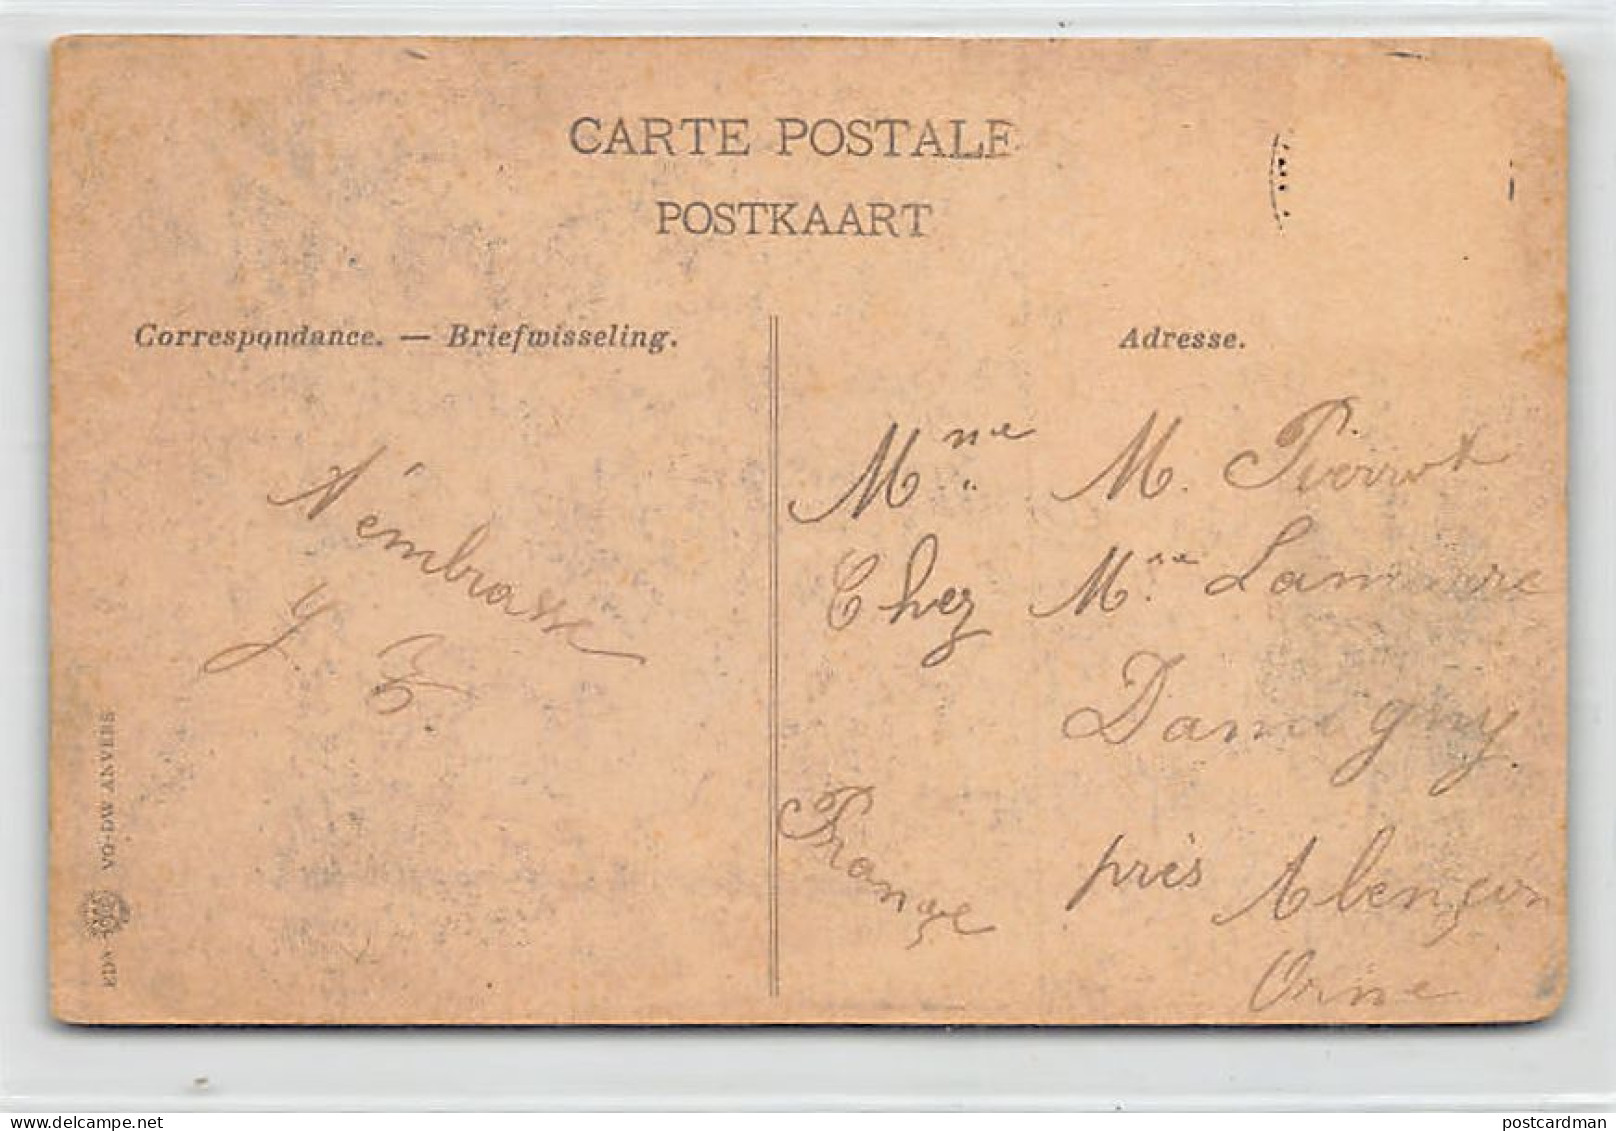 CARTE POSTALE
POSTKAART
Correspondance. — Briefwisseling.
Adresse.
t'émbrasse
Mme M. Pierrot
Chez Mme
Damigny
près Alençon
Orne
France
VO-DW ANVERS
postcardman